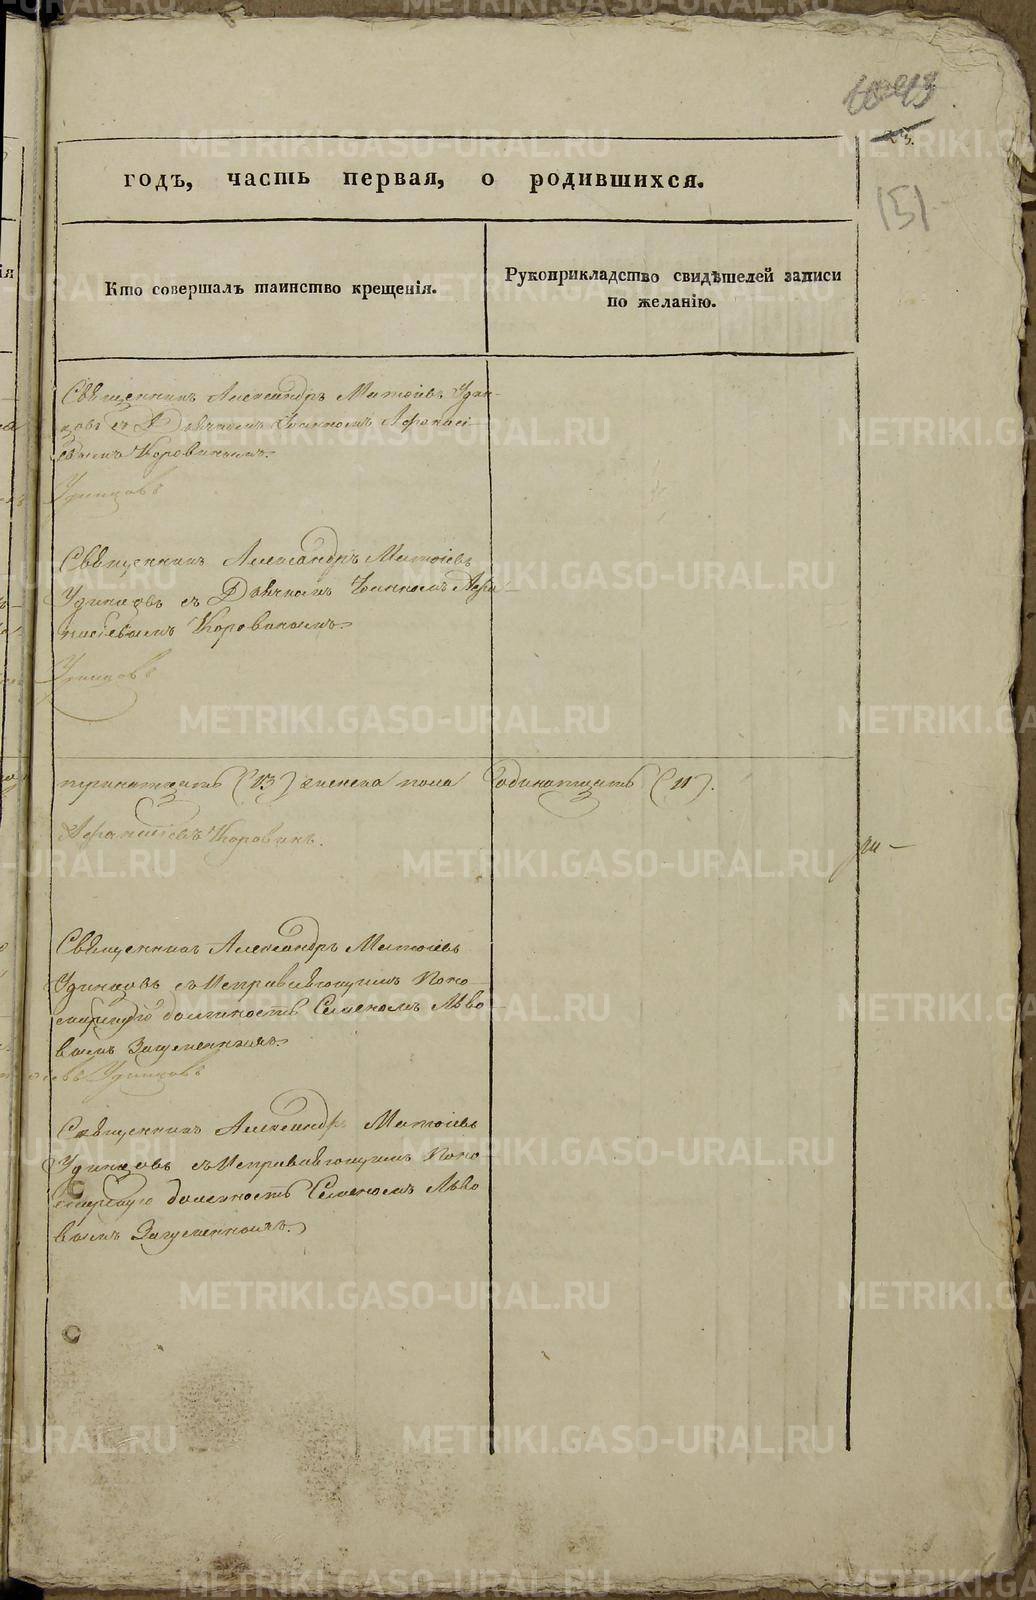 годъ, часть первая, о родившихся.
Кто совершалъ таинство крещенія.
Рукоприкладство свидѣтелей записи
по желанію.
151
Священникъ Александръ Матѳіевъ Удин-
цовъ съ Дьячкомъ Іоанномъ Аѳанасі
евымъ Коровинымъ.
Удинцовъ
Священникъ Александръ Матѳіевъ
Удинцовъ съ Дьячкомъ Іоанномъ Аѳа-
насіевымъ Коровинымъ.
Удинцовъ
тринатцать (13) женска пола одинатцать (11).
Аѳанасіевъ Коровинъ.
Священникъ Александръ Матѳіевъ
Удинцовъ съ Исправляющимъ Поно-
марскую должность Семеномъ Льво
вымъ Загуменныхъ.
Удинцовъ
Священникъ Александръ Матѳіевъ
Удинцовъ съ Исправляющимъ Поно
марскую должность Семеномъ Льво
вымъ Загуменныхъ.
METRIKI.GASO-URAL.RU